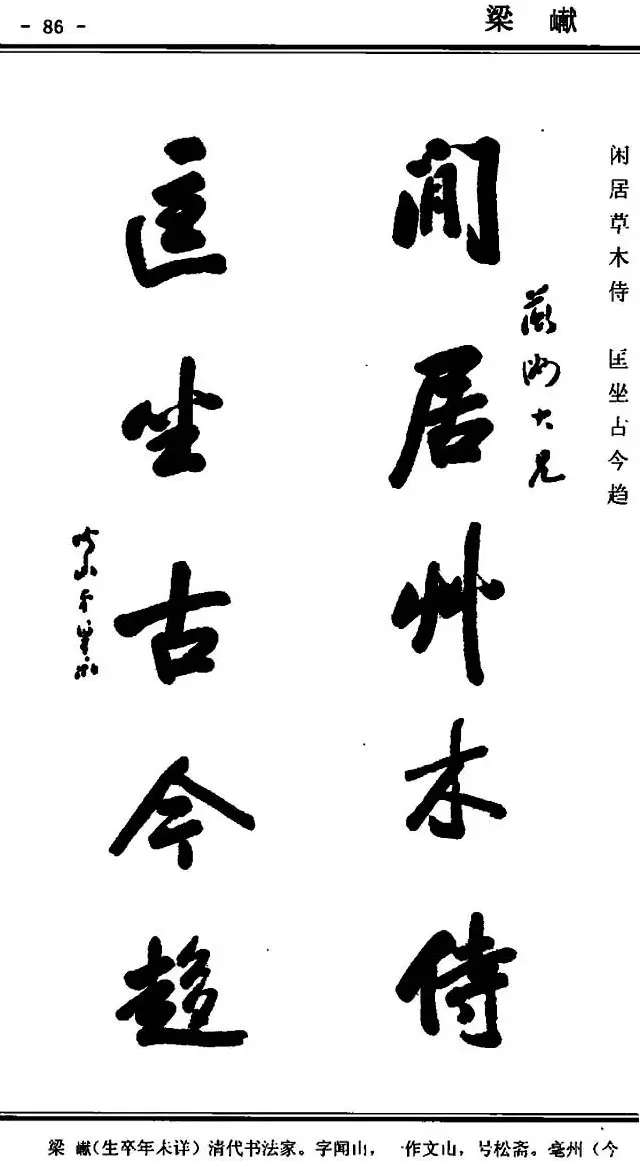 - 86 -
梁 巘
闲居草木侍 匡坐古今趋
閒居艸木侍
大兄
匡坐古今趨
梁 巘(生卒年未详)清代书法家。字闻山, 一作文山,号松斋。亳州(今